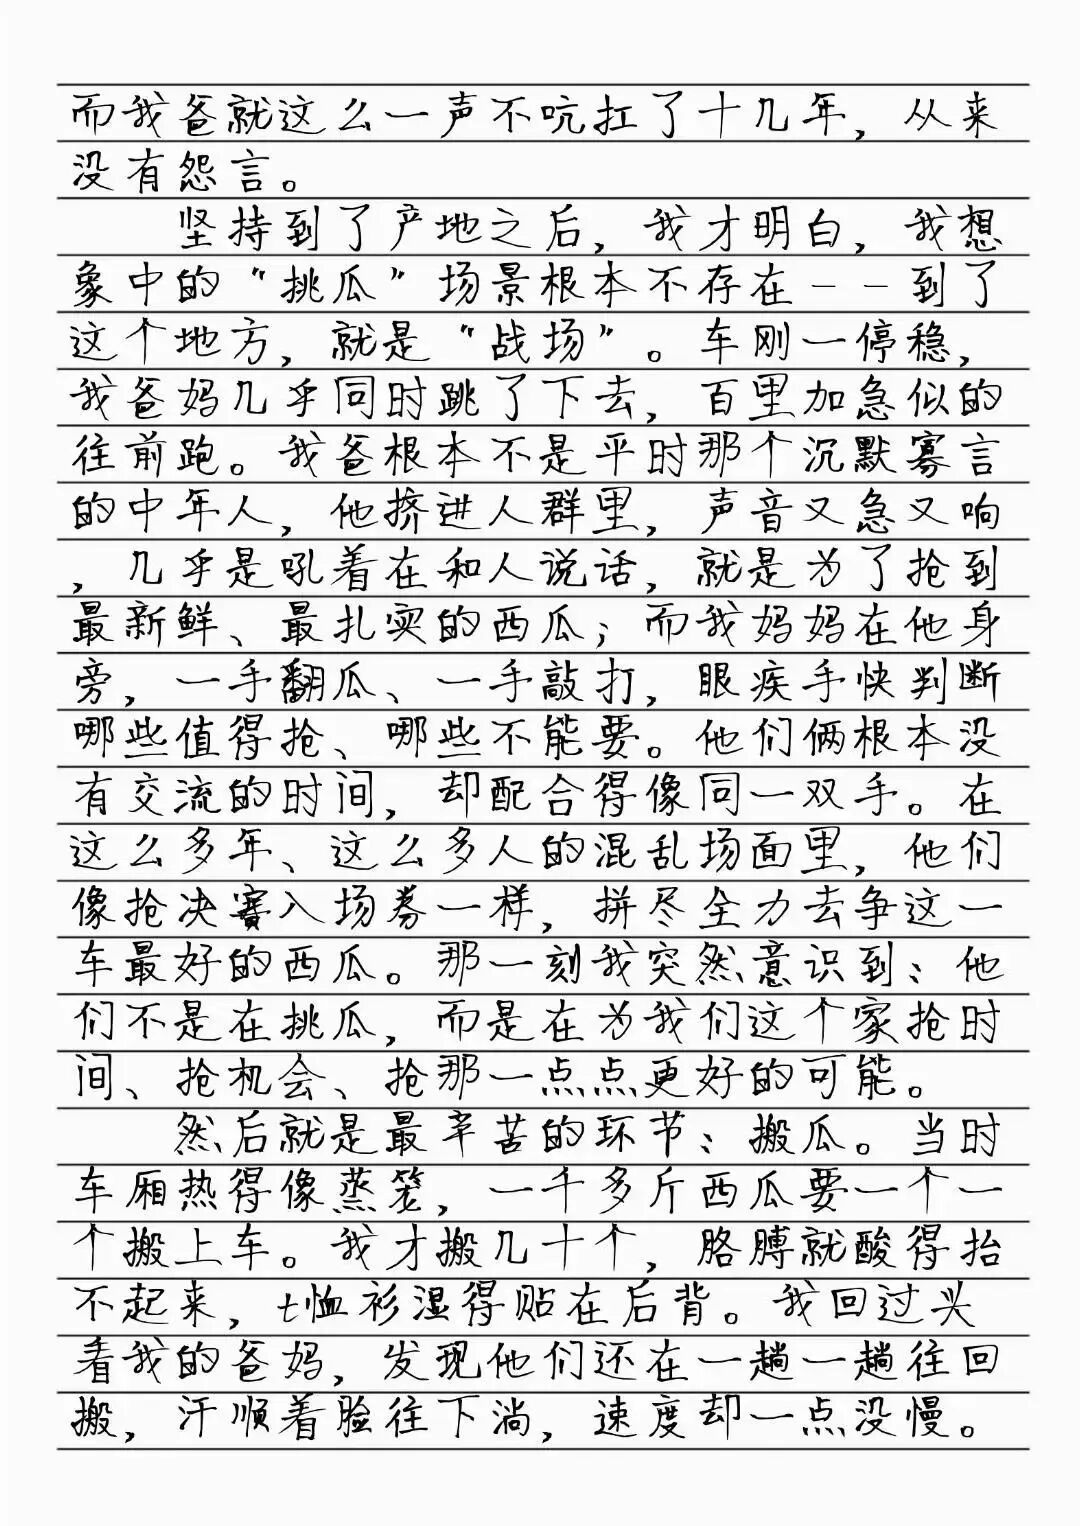 而我爸就这么一声不吭扛了十几年，从来
没有怨言。
坚持到了产地之后，我才明白，我想
象中的“挑瓜”场景根本不存在--到了
这个地方，就是“战场”。车刚一停稳，
我爸妈几乎同时跳了下去，百里加急似的
往前跑。我爸根本不是平时那个沉默寡言
的中年人，他挤进人群里，声音又急又响
，几乎是吼着在和人说话，就是为了抢到
最新鲜、最扎实的西瓜；而我妈妈在他身
旁，一手翻瓜、一手敲打，眼疾手快判断
哪些值得抢、哪些不能要。他们俩根本没
有交流的时间，却配合得像同一双手。在
这么多年、这么多人的混乱场面里，他们
像抢决赛入场券一样，拼尽全力去争这一
车最好的西瓜。那一刻我突然意识到：他
们不是在挑瓜，而是在为我们这个家抢时
间、抢机会、抢那一点点更好的可能。
然后就是最辛苦的环节：搬瓜。当时
车厢热得像蒸笼，一千多斤西瓜要一个一
个搬上车。我才搬几十个，胳膊就酸得抬
不起来，t恤衫湿得贴在后背。我回过头
看我的爸妈，发现他们还在一趟一趟往回
搬，汗顺着脸往下淌，速度却一点没慢。